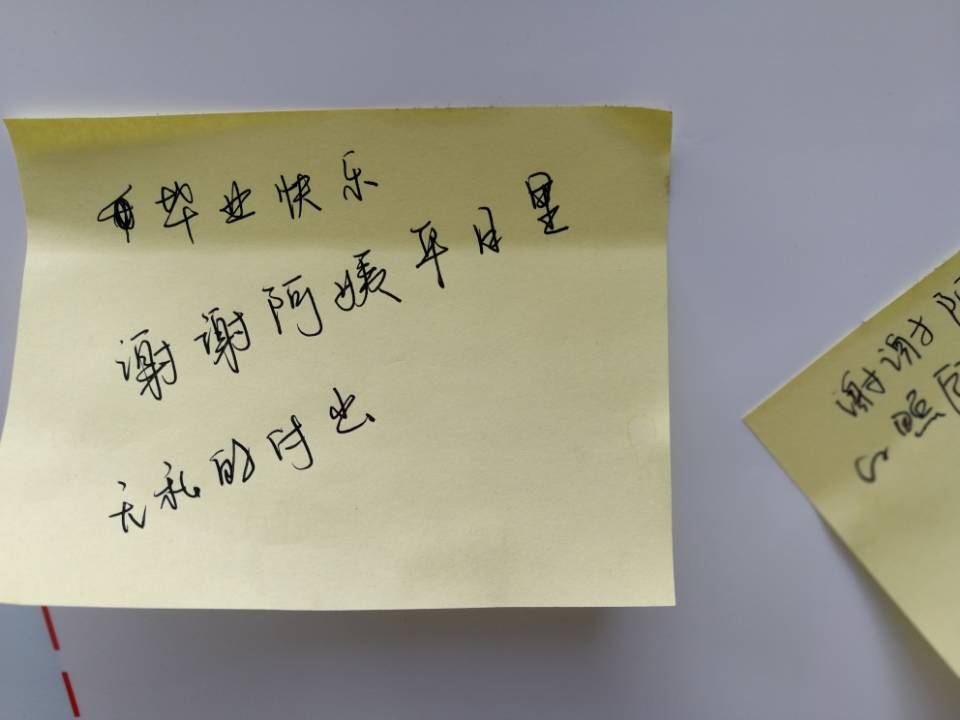 毕业快乐
谢谢阿姨平日里
无私的付出
谢谢阿
心照顾